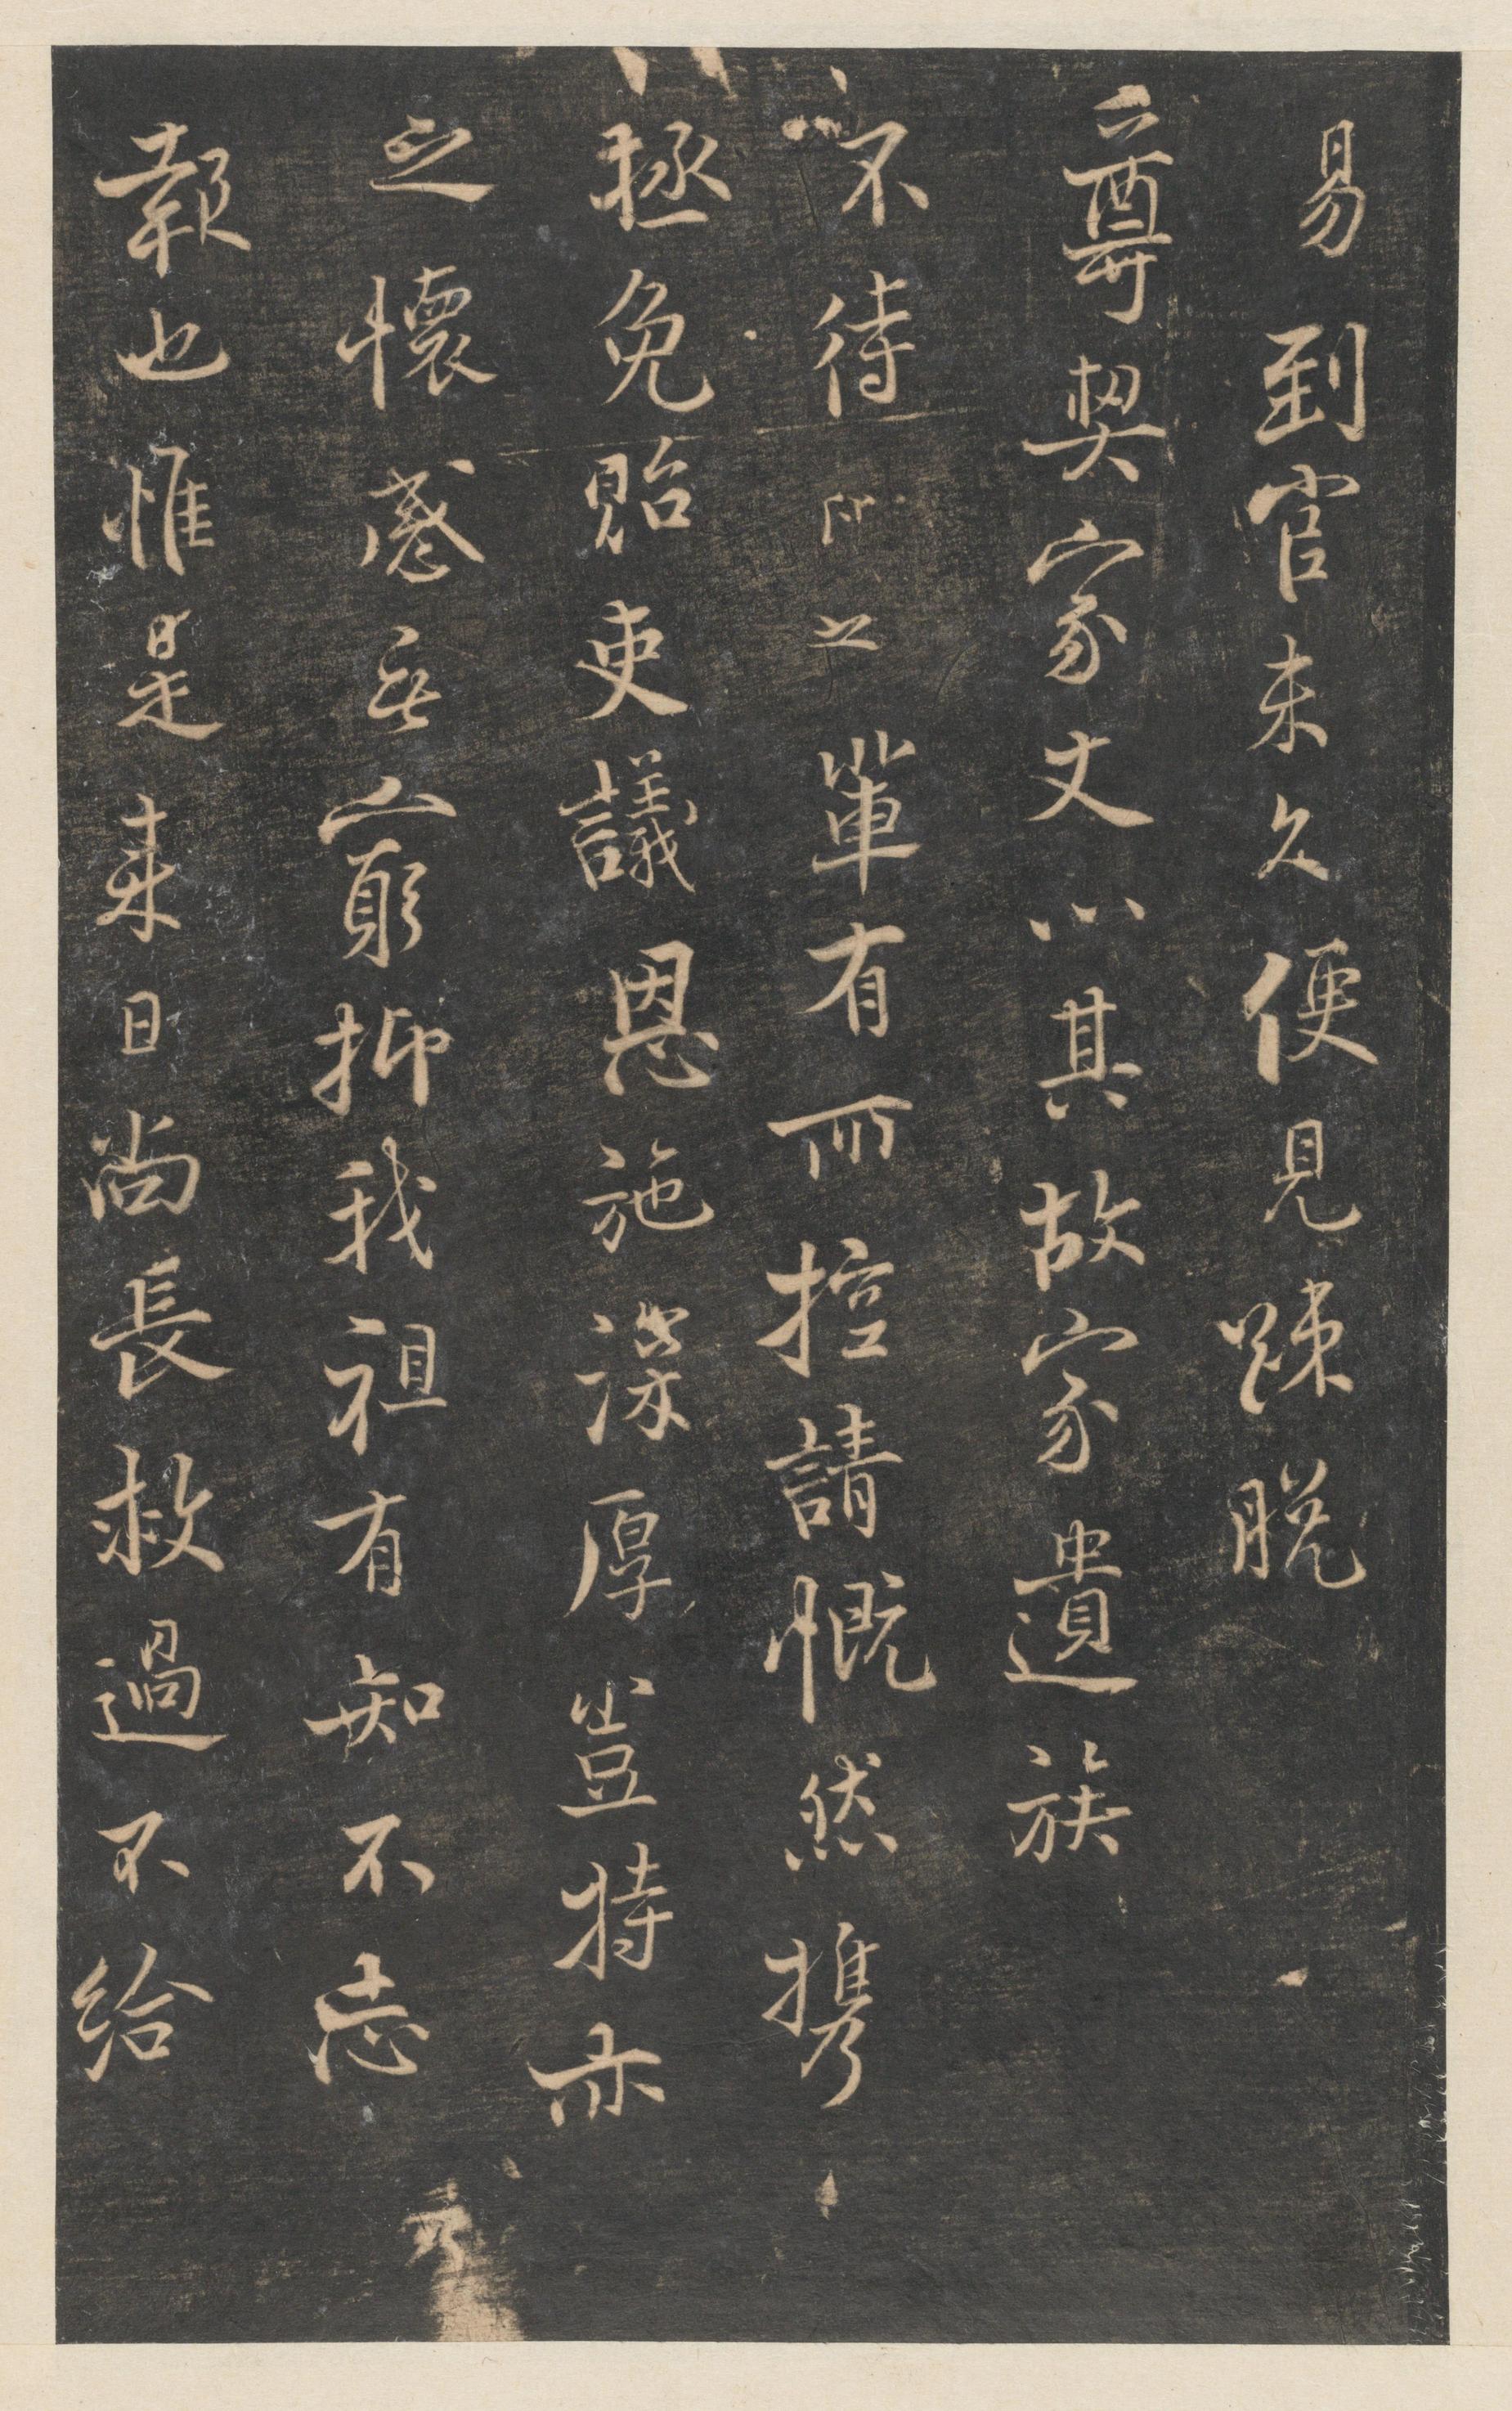 易到官未久便見踈脫
尊契家丈以其故家遺族
不待 之單有所控請慨然携
拯免貽吏議恩施深厚豈特亦
之懷感無窮抑我祖有知不忘
報也惟是来日尚長救過不給